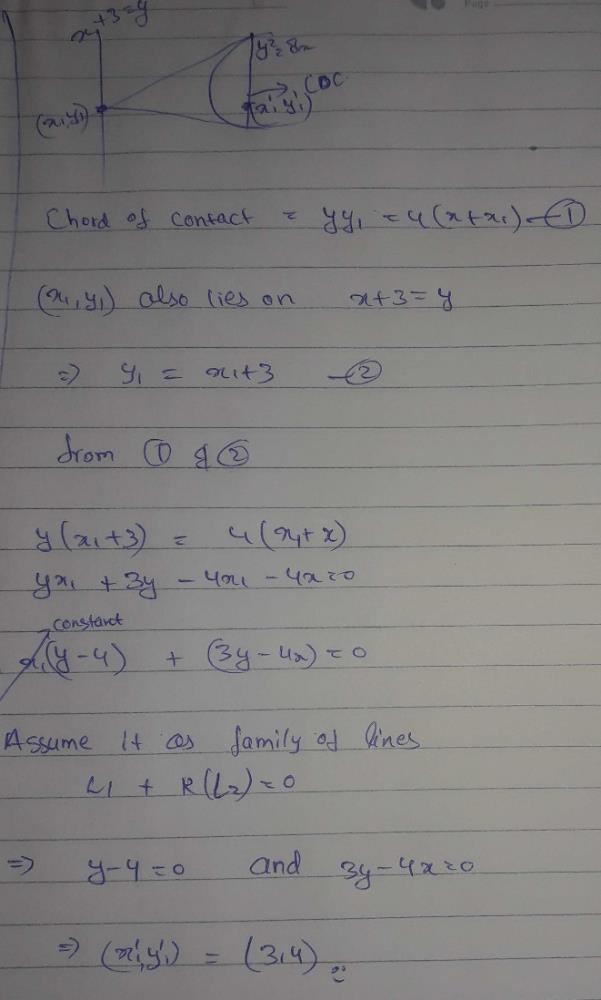 x+3=y
y²=8x
COC
(x₁y₁)
(x₁' y₁')
Chord of contact = yy₁ = 4(x+x₁) —①
(x₁,y₁) also lies on x+3=y
⇒ y₁ = x₁+3 —②
from ① & ②
y(x₁+3) = 4(x₁+x)
yx₁ + 3y - 4x₁ - 4x=0
constant
x₁(y-4) + (3y-4x)=0
Assume it as family of lines
L₁ + K(L₂)=0
⇒ y-4=0 and 3y-4x=0
⇒ (x₁',y₁') = (3,4)